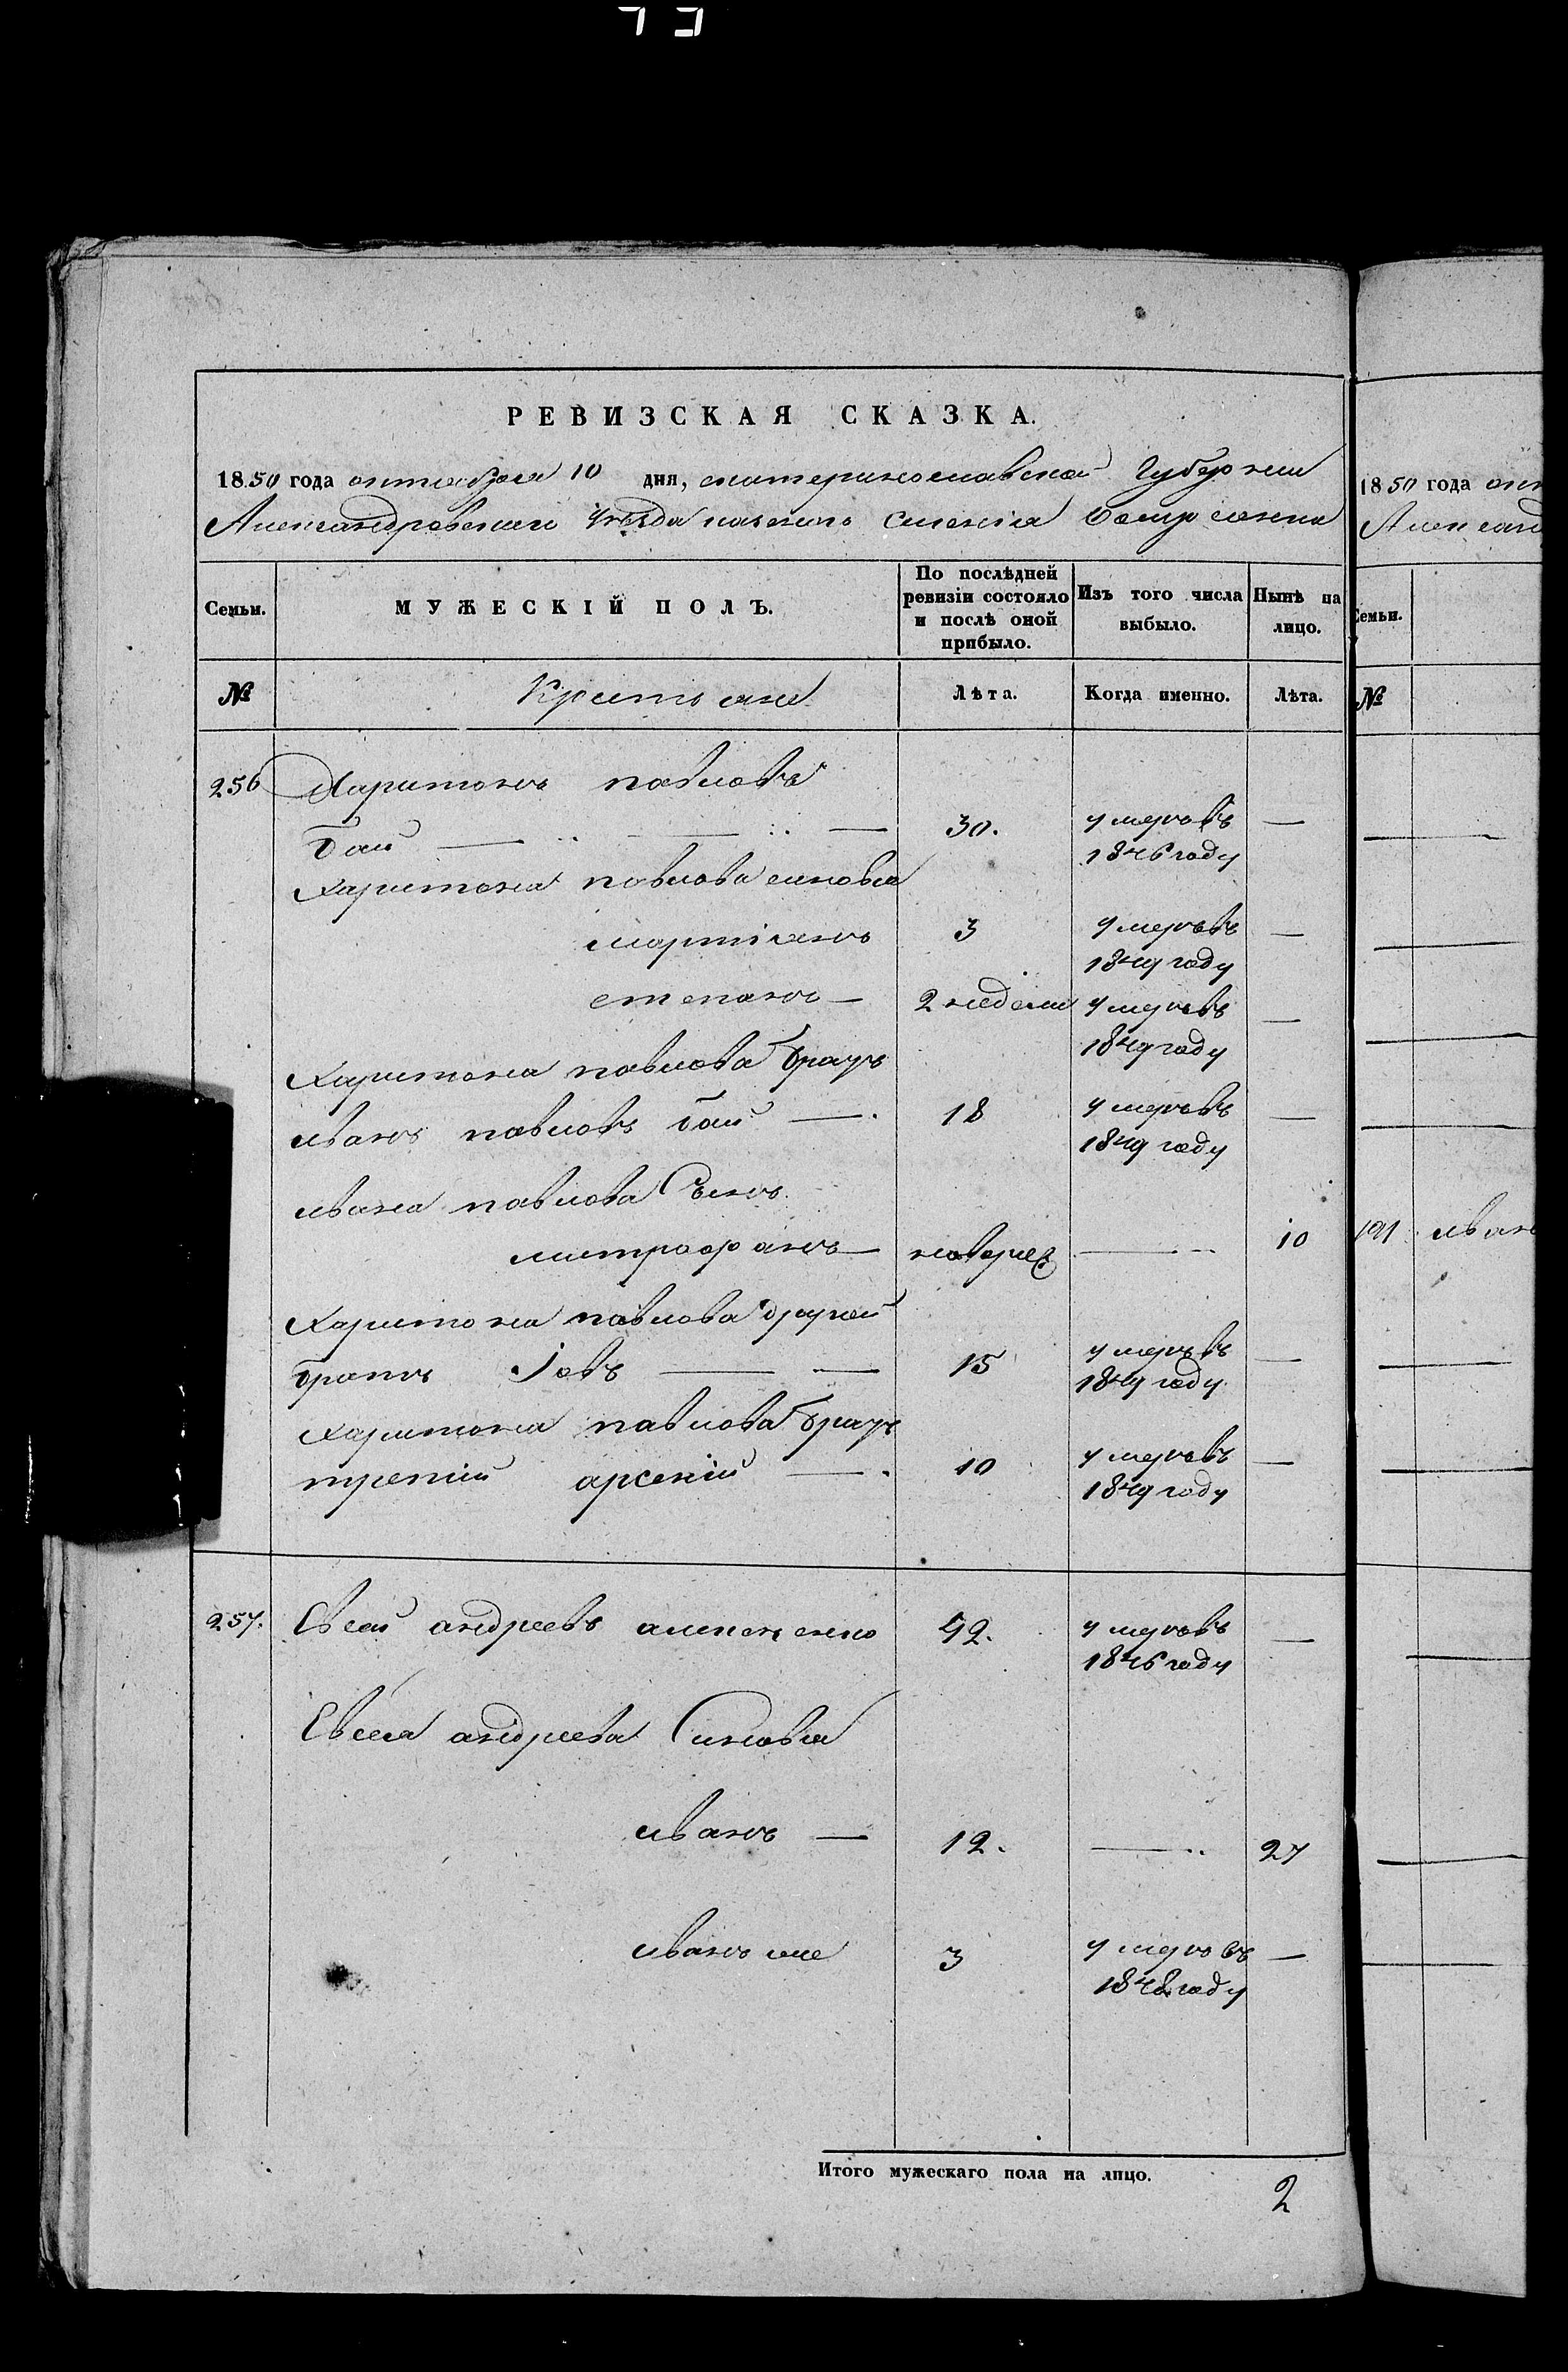 РЕВИЗСКАЯ СКАЗКА.
1850 года октября 10 дня, екатеринославской Губернии
Александровскаго уезда казенного селенія
Семьи.
МУЖЕСКІЙ ПОЛЪ.
По послѣдней ревизіи состояло и послѣ оной прибыло.
Изъ того числа выбыло.
Нынѣ на лицо.
№
Крестьяне
Лѣта.
Когда именно.
Лѣта.
256 Харитонъ павловъ
бай 30. умеръ въ —
1846 году
Харитона павлова синовья
мартіанъ 3 умеръ въ —
1849 году
степанъ — 2 недели умеръ въ —
1849 году
Харитона павлова братъ
иванъ павловъ бай — 18 умеръ въ —
1849 году
ивана павлова Сынъ
митрофанъ — новорож — 10
Харитона павлова другой
братъ Іовъ — 15 умеръ въ —
1849 году
Харитона павлова братъ
третій арсеній — 10 умеръ въ —
1849 году
257. Евсей андреевъ 42. умеръ въ —
1846 году
Евсея андреева Синовья
иванъ — 12. — 27
иванъ же 3 умеръ въ —
1848 году
Итого мужескаго пола на лицо.
2
1850 года окт
Александ
Семьи.
№
191 иван